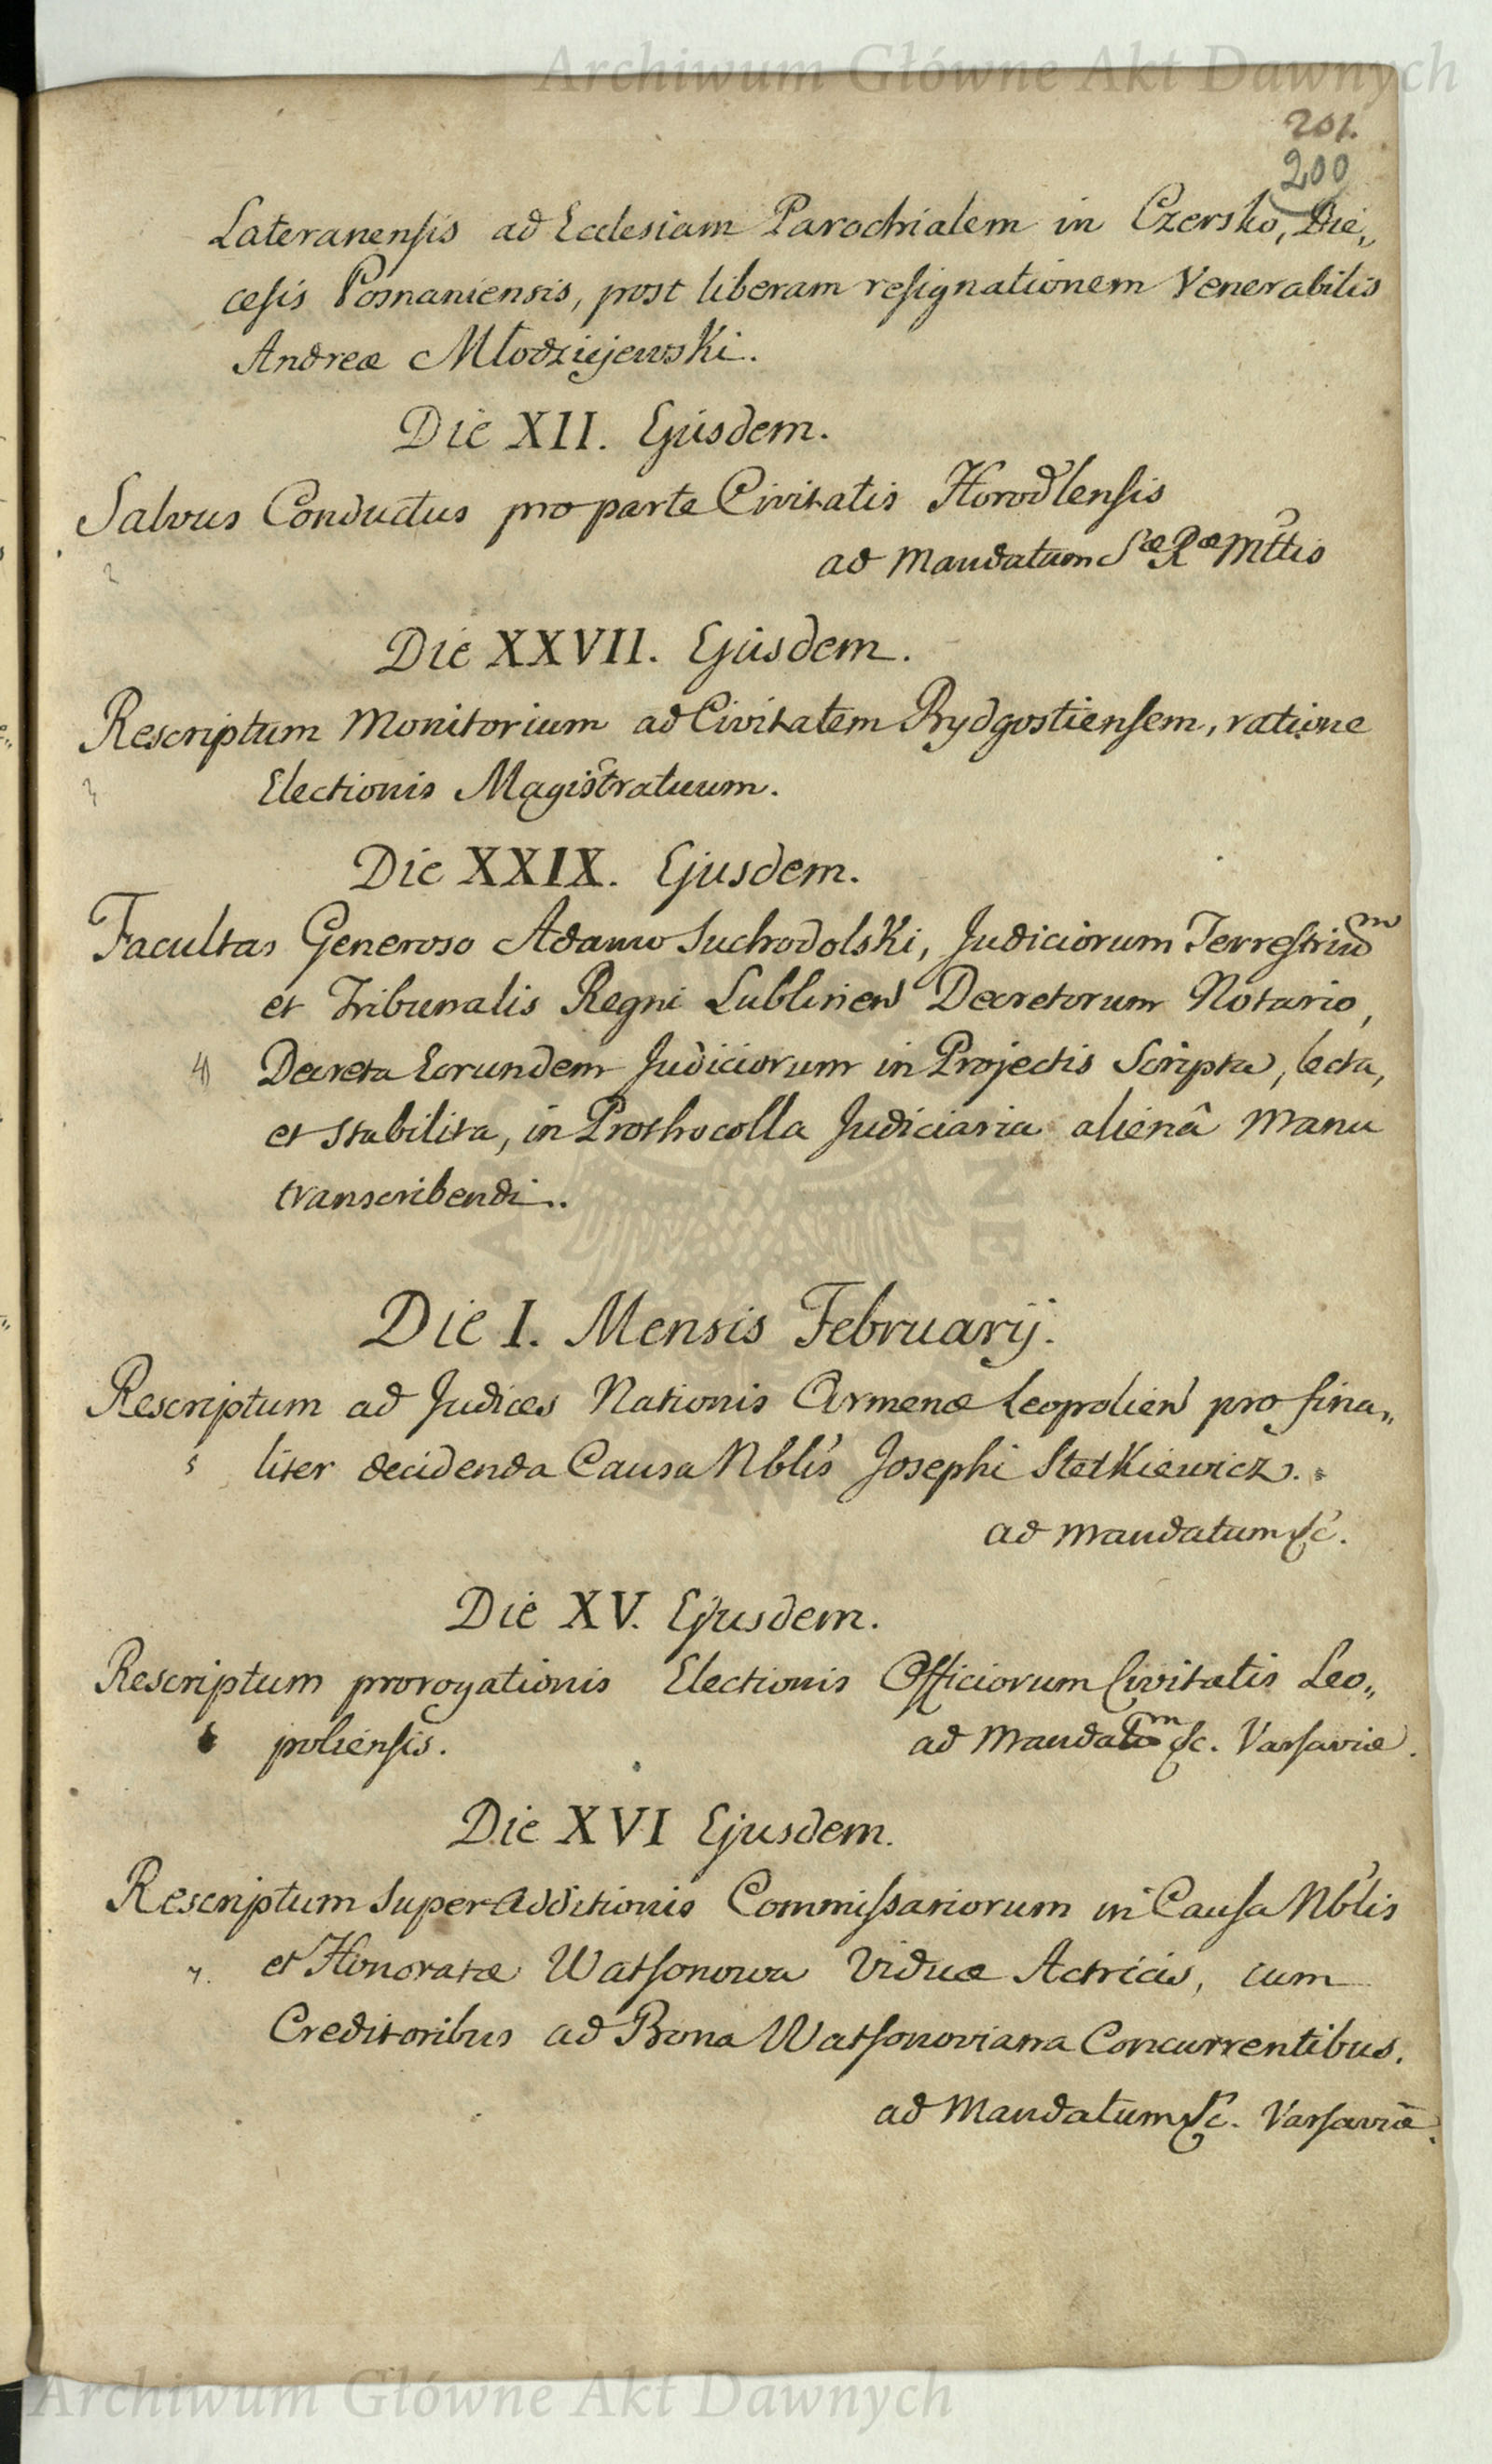 Archiwum Główne Akt Dawnych
201.
200
Lateranensis ad Ecclesiam Parochialem in Czersko, Die„
cesis Posnaniensis, post liberam resignationem Venerabilis
Andreæ Młodziejewski.
Die XII. Ejusdem.
Salvus Conductus pro parte Civitatis Horodlensis
2
ad Mandatum Sæ Ræ Mttis
Die XXVII. Ejusdem.
Rescriptum Monitorium ad Civitatem Bydgostiensem, ratione
3
Electionis Magistratuum.
Die XXIX. Ejusdem.
Facultas Generoso Adamo Suchodolski, Judiciorum Terrestrium
et Tribunalis Regni Lublinen Decretorum Notario,
4) Decreta Eorundem Judiciorum in Projectis Scripta, lecta,
et Stabilita, in Prothocolla Judiciaria alienâ Manu
transcribendi..
Die I. Mensis Februarij.
Rescriptum ad Judices Nationis Armenæ Leopolien pro fina„
5 liter decidenda Causa Nblis Josephi Stetkiewicz.
ad Mandatum &c.
Die XV. Ejusdem.
Rescriptum prorogationis Electionis Officiorum Civitatis Leo„
6 poliensis. ad Mandatum &c. Varsaviæ.
Die XVI Ejusdem.
Rescriptum Super Additionis Commissariorum in Causa Nblis
7. et Honoratæ Watsonowa Viduæ Actricis, cum
Creditoribus ad Bona Watsonoviana Concurrentibus.
ad Mandatum &c. Varsaviæ.
Archiwum Główne Akt Dawnych